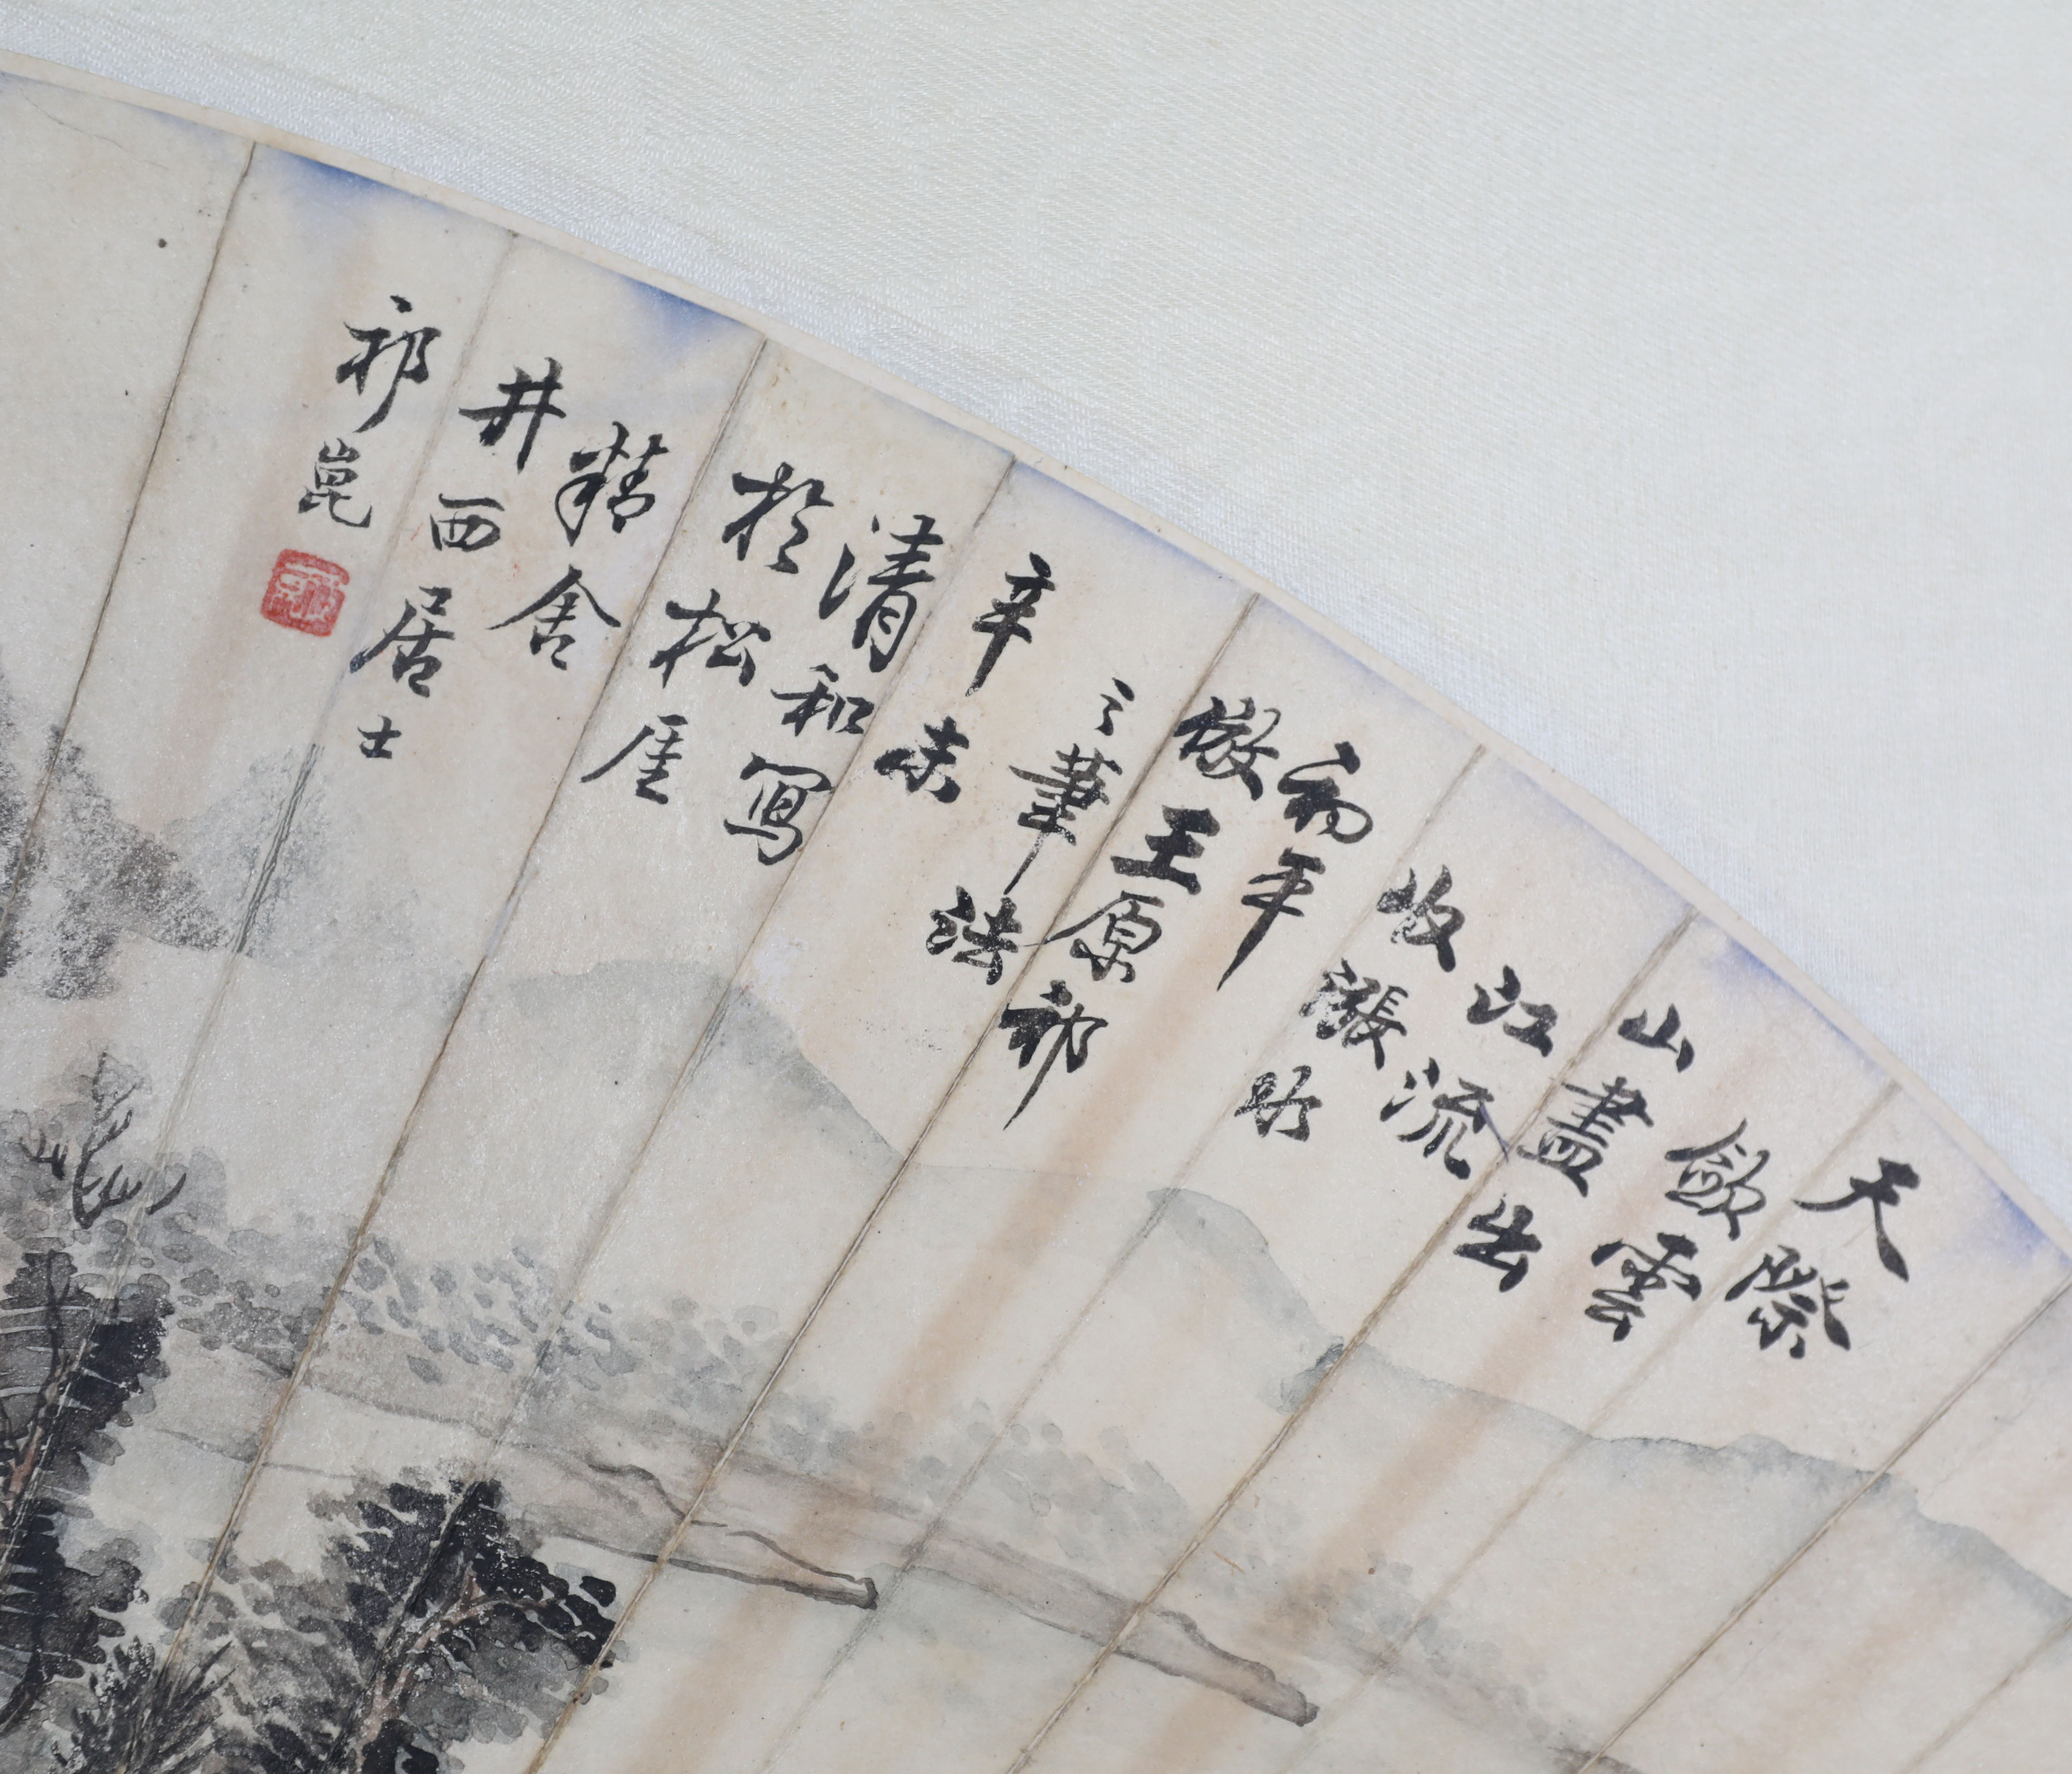 天際
斂雲
山盡出
江流
收漲
初平
倣王原祁
之筆法
辛未
清和寫
於松厓
精舍
井西居士
祁崑